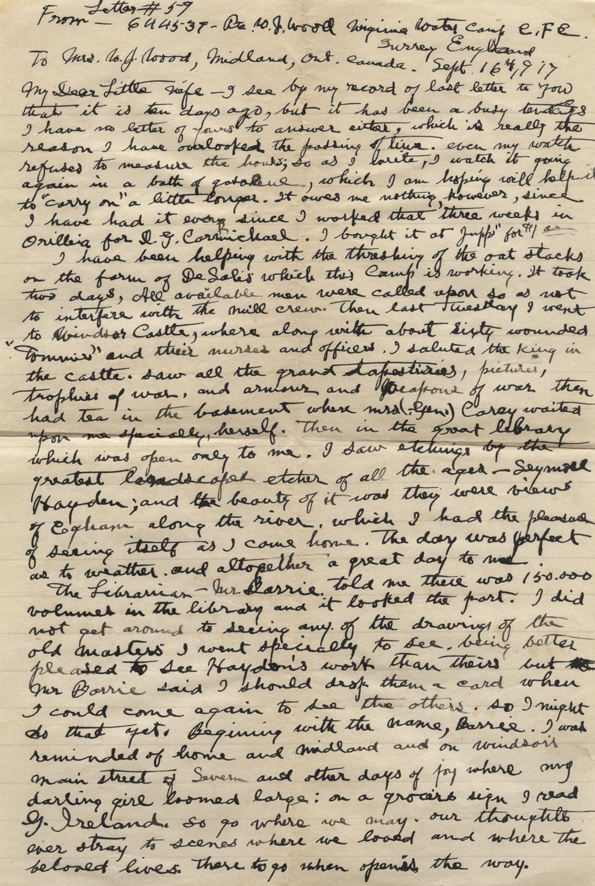 Letter # 59
From — 644537 - Pte W. J. Wood Virginia Water Camp C.F.C.
Surrey England
To Mrs. W. J. Wood, Midland, Ont. Canada. Sept. 16th, 1917
My Dear Little Wife — I see by my record of last letter to you
that it is ten days ago, but it has been a busy ten days
I have no letter of yours to answer either, which is really the
reason I have overlooked the passing of time. even my watch
refuses to measure the hours; so as I write, I watch it going
again in a bath of gasolene, which I am hoping will help it
to "carry on" a little longer. It owes me nothing, however, since
I have had it ever since I worked that three weeks in
Orillia for D. G. Carmichael. I bought it at Jupp's for $1
I have been helping with the thrashing of the oat stacks
on the farm of De Salis which this Camp is working. It took
two days, All available men were called upon so as not
to interfere with the mill crew. Then last Tuesday I went
to Windsor Castle, where along with about sixty wounded
"Tommies" and their nurses and officers. I saluted the King in
the castle. saw all the grand tapestries, pictures,
trophies of war, and armour and weapons of war then
had tea in the basement where Mrs (Gen) Carey waited
upon me specially, herself. Then in the great library
which was open only to me. I saw etchings by the
greatest landscape etcher of all the ages — Seymour
Hayden; and the beauty of it was they were views
of Egham along the river, which I had the pleasure
of seeing itself as I came home. the day was perfect
as to weather. and altogether a great day to me.
The Librarian — Mr Barrie, told me there was 150.000
volumes in the library and it looked the part. I did
not get around to seeing any of the drawings of the
old masters I went specially to see. being better
pleased to see Haydon's work than theirs but
Mr Barrie said I should drop them a card when
I could come again to see the others. so I might
do that yet. Begining with the name, Barrie. I was
reminded of home and Midland and on Windsor's
main street of Severn and other days of joy where my
darling girl loomed large: on a grocer's sign I read
G. Ireland. So go where we may. our thoughts
ever stray to scenes where we loved and where the
beloved lives. there to go when opens the way.